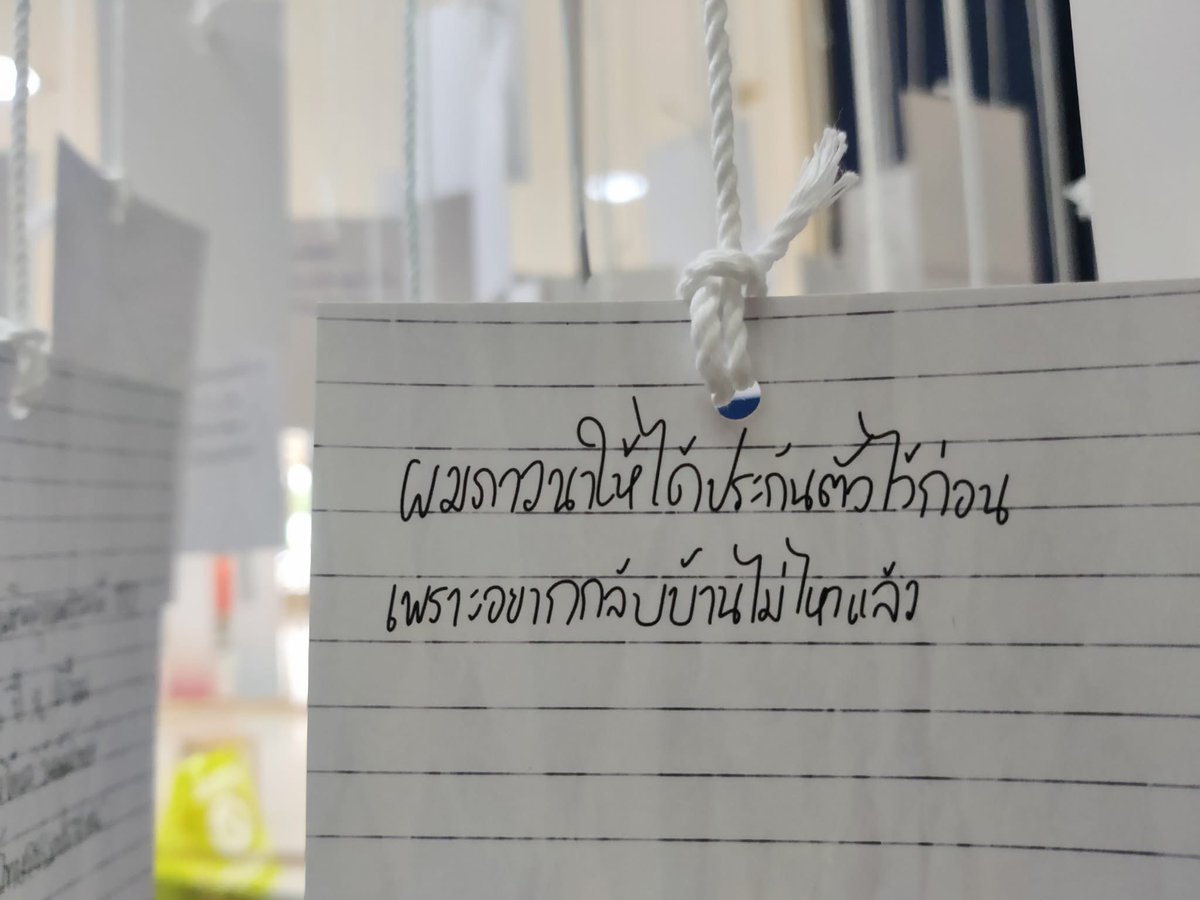 ผมภาวนาให้ได้ประกันตัวไว้ก่อน
เพราะอยากกลับบ้านไม่ไหวแล้ว